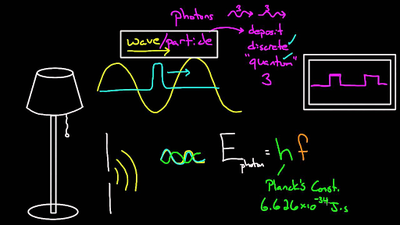 photons
wave/particle
deposit
discrete
"quantum"
3
E photon = hf
Planck's Const.
6.626×10⁻³⁴ J·s